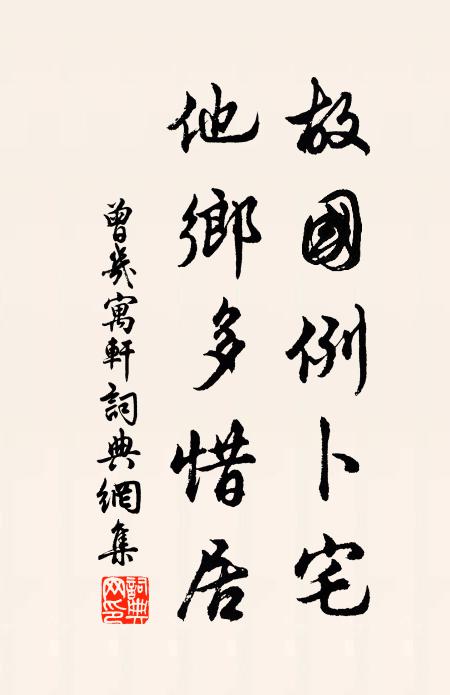 故國例卜宅
他鄉多惜居
曾幾寓軒詞典網集
詞典网印